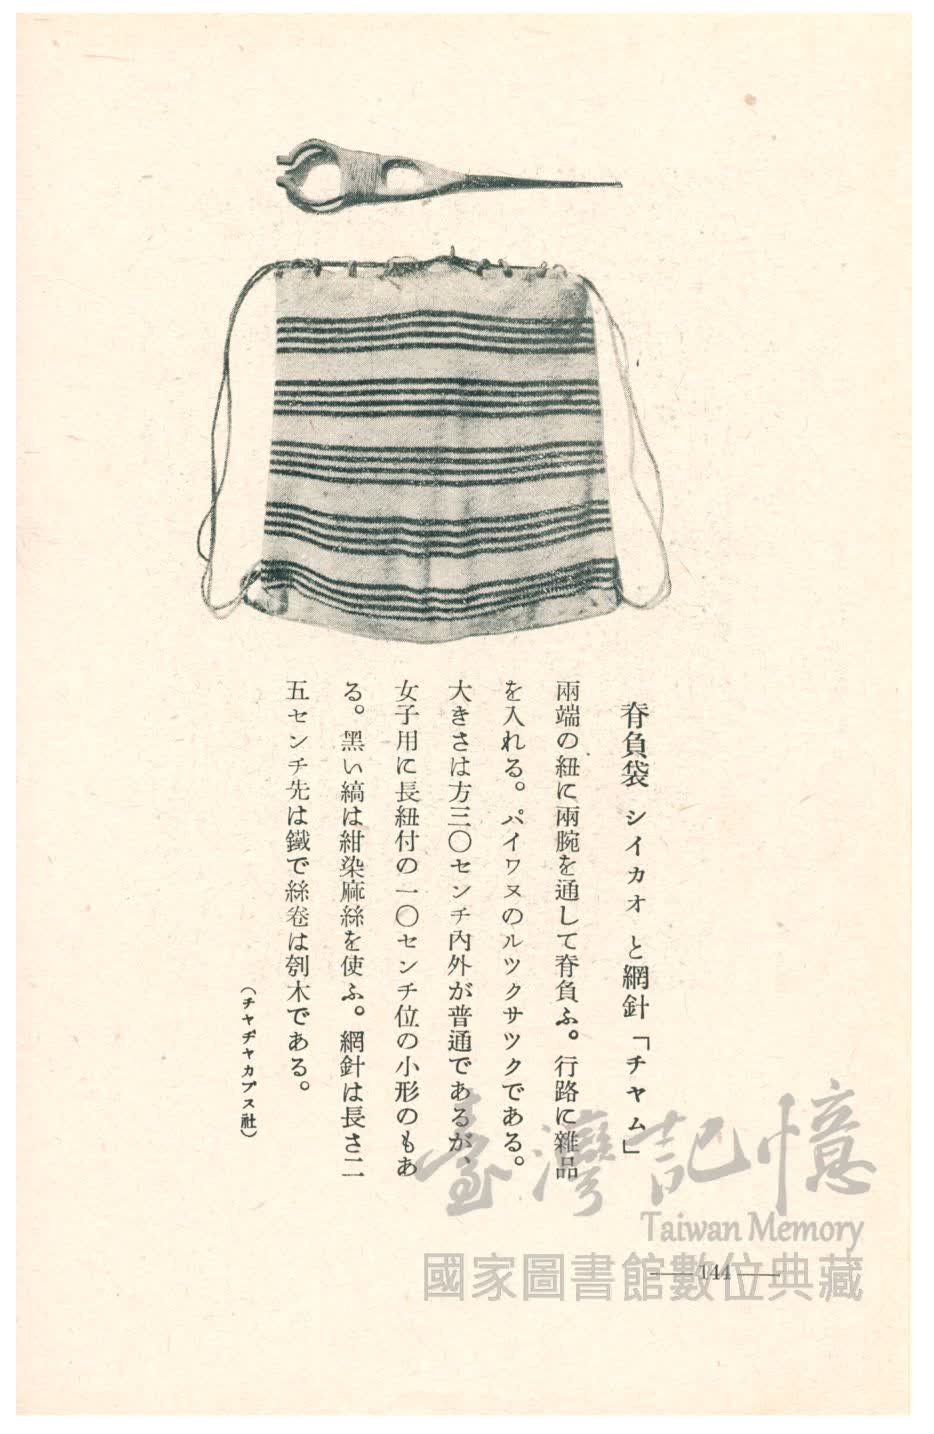 脊負袋 シイカオ と網針「チヤム」
兩端の紐に兩腕を通して脊負ふ。行路に雜品
を入れる。パイワヌのルツクサツクである。
大きさは方三〇センチ內外が普通であるが、
女子用に長紐付の一〇センチ位の小形のもあ
る。黑い縞は紺染麻絲を使ふ。網針は長さ二
五センチ先は鐵で絲卷は刳木である。
(チヤヂヤカブス社)
臺灣記憶
Taiwan Memory
國家圖書館數位典藏
144